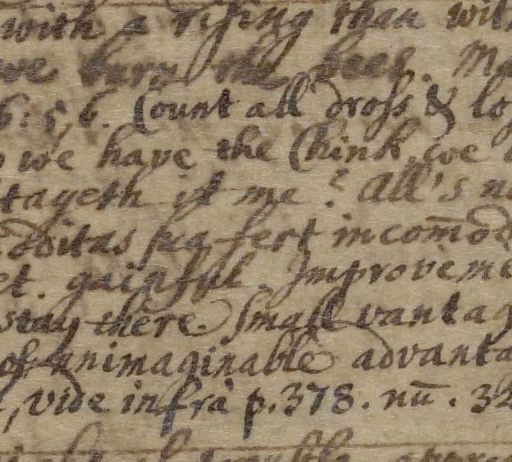 with a rising than with
we burn the bees. Ma
6: 5, 6. Count all dross & lo
we have the Chink, we
tageth it me? All's n
oditas sua fert incom̄od
et. gainful. Improveme
stay there. Small vantag
of unimaginable advanta
, vide infrà p. 378. nū. 32